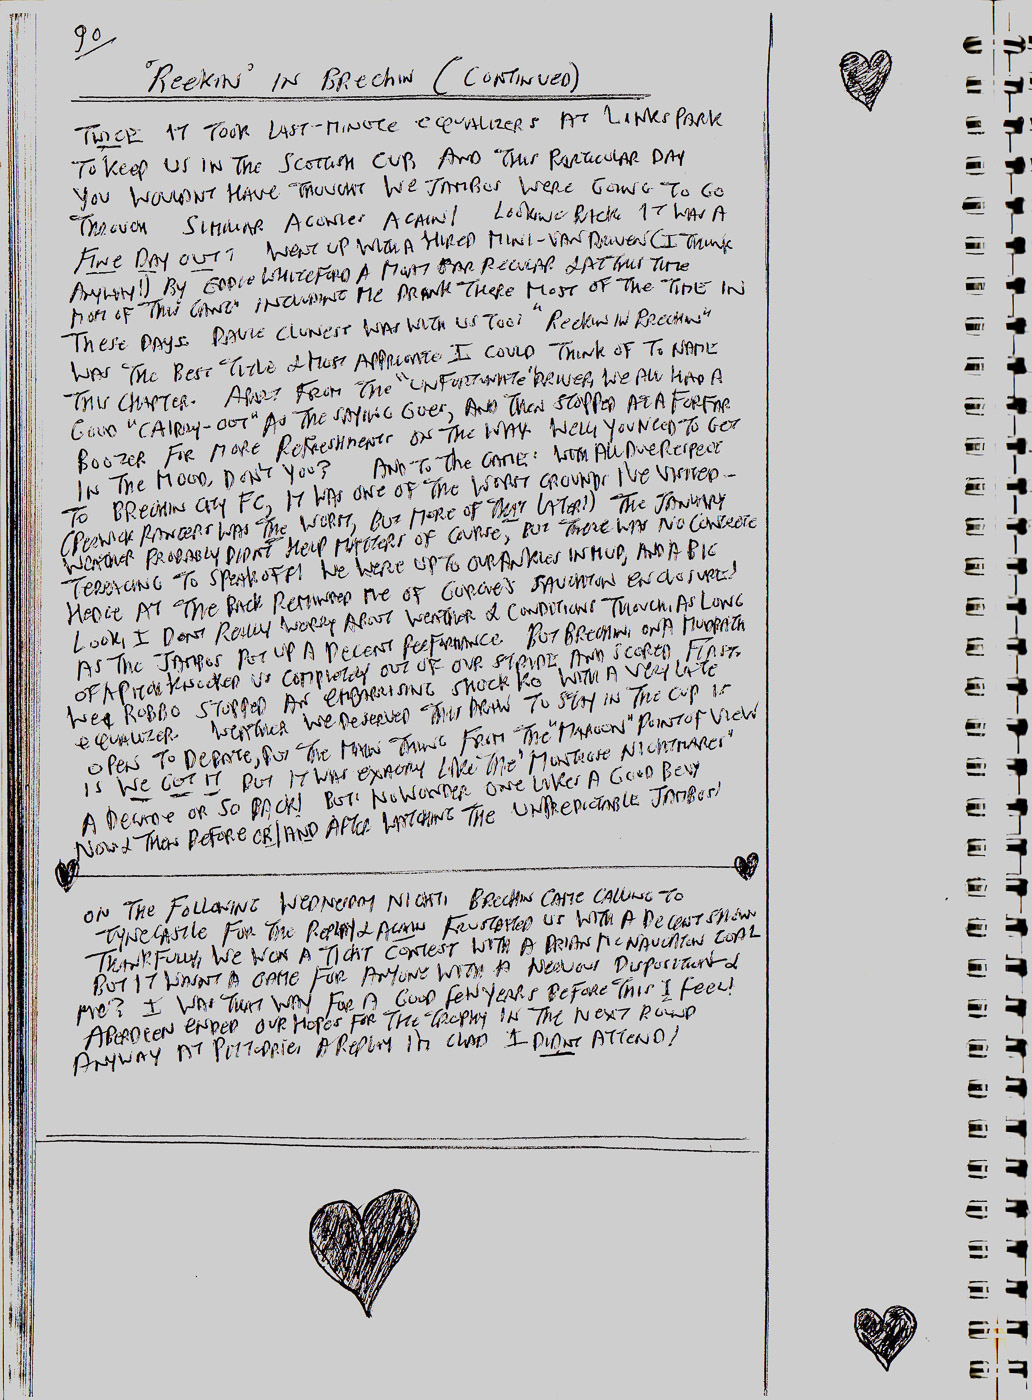 90
'Reekin' in Brechin (Continued)
Twice it took last-minute equalizers at Links Park
to keep us in the Scottish Cup, and this particular day
you wouldnt have thought we Jambos were going to go
through similiar agonies again! Looking back it was a
fine day out! Went up with a hired mini-van driven (I think
anyway!) by Eddie Whiteford a Moat Bar regular & at this time
most of this "gang" including me drank there most of the time in
these days. Davie Clunest was with us too! "Reekin in Brechin"
was the best title & most appropiate I could think of to name
this chapter. Apart from the "unfortunate" driver, we all had a
good "cairry-oot" as the saying goes, and then stopped at a Forfar
boozer for more refreshments on the way. Well, you need to get
in the mood, don't you? And to the game: with all due respect
to Brechin City FC, it was one of the worst grounds I've visited -
(Berwick Rangers was the worst, but more of that later!) The January
weather probably didn't help matters of course, but there was no concrete
terracing to speak off! We were up to our ankles in mud, and a big
hedge at the back reminded me of Gorgie's Saughton enclosure!
Look, I dont really worry about weather & conditions though, as long
as the Jambos put up a decent performance. But Brechin, on a mudbath
of a pitch knocked us completely out of our stride and scored first.
Wee Robbo stopped an embarrising shock KO with a very late
equalizer. Weather we deserved this draw to stay in the cup is
open to debate, but the main thing from the "maroon" point of view
is we got it but it was exactly like the "Montrose nightmares"
a decade or so back! But! no wonder one likes a good bevy
now & then before or/and after watching the unpredictable Jambos!
On the following Wednesday night, Brechin came calling to
Tynecastle for the replay & again frustated us with a decent show
Thankfully, we won a tight contest with a Brian McNaughton goal
but it wasnt a game for anyone with a nervous disposition &
me? I was that way for a good few years before this I feel!
Aberdeen ended our hopes for the trophy in the next round
anyway at Pittodrie, a replay I'm glad I didnt attend!